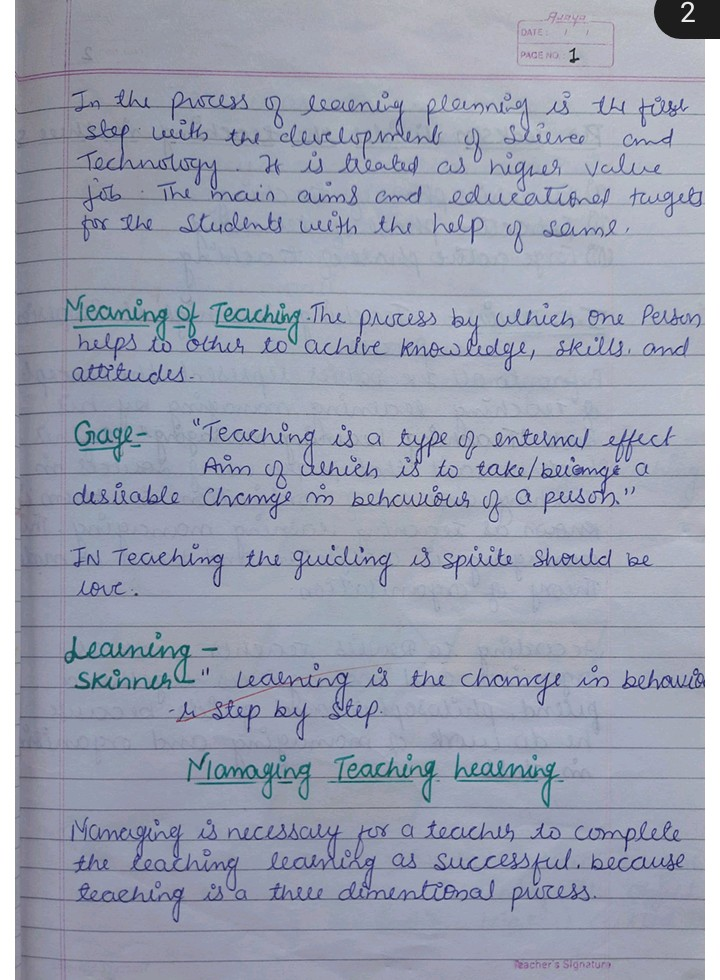 2
Ajaya
DATE: / /
PAGE NO. 1
In the process of learning planning is the first
step with the development of Science and
Technology. It is treated as higher value
job. The main aims and educational tugets
for the Students with the help of same.
Meaning of Teaching. The process by which one Person
helps to other to achive knowledge, skills, and
attitudes.
Gage- "Teaching is a type of enternal effect
Aim of which is to take/beiomge a
desirable Change in behaviour of a person."
IN Teaching the guiding is spirite should be
love.
Learning -
Skinner - " Learning is the change in behavio
r step by step.
Managing Teaching Learning
Managing is necessary for a teacher to complete
the teaching learning as successful. because
teaching is a three dimentional process.
Teacher's Signature